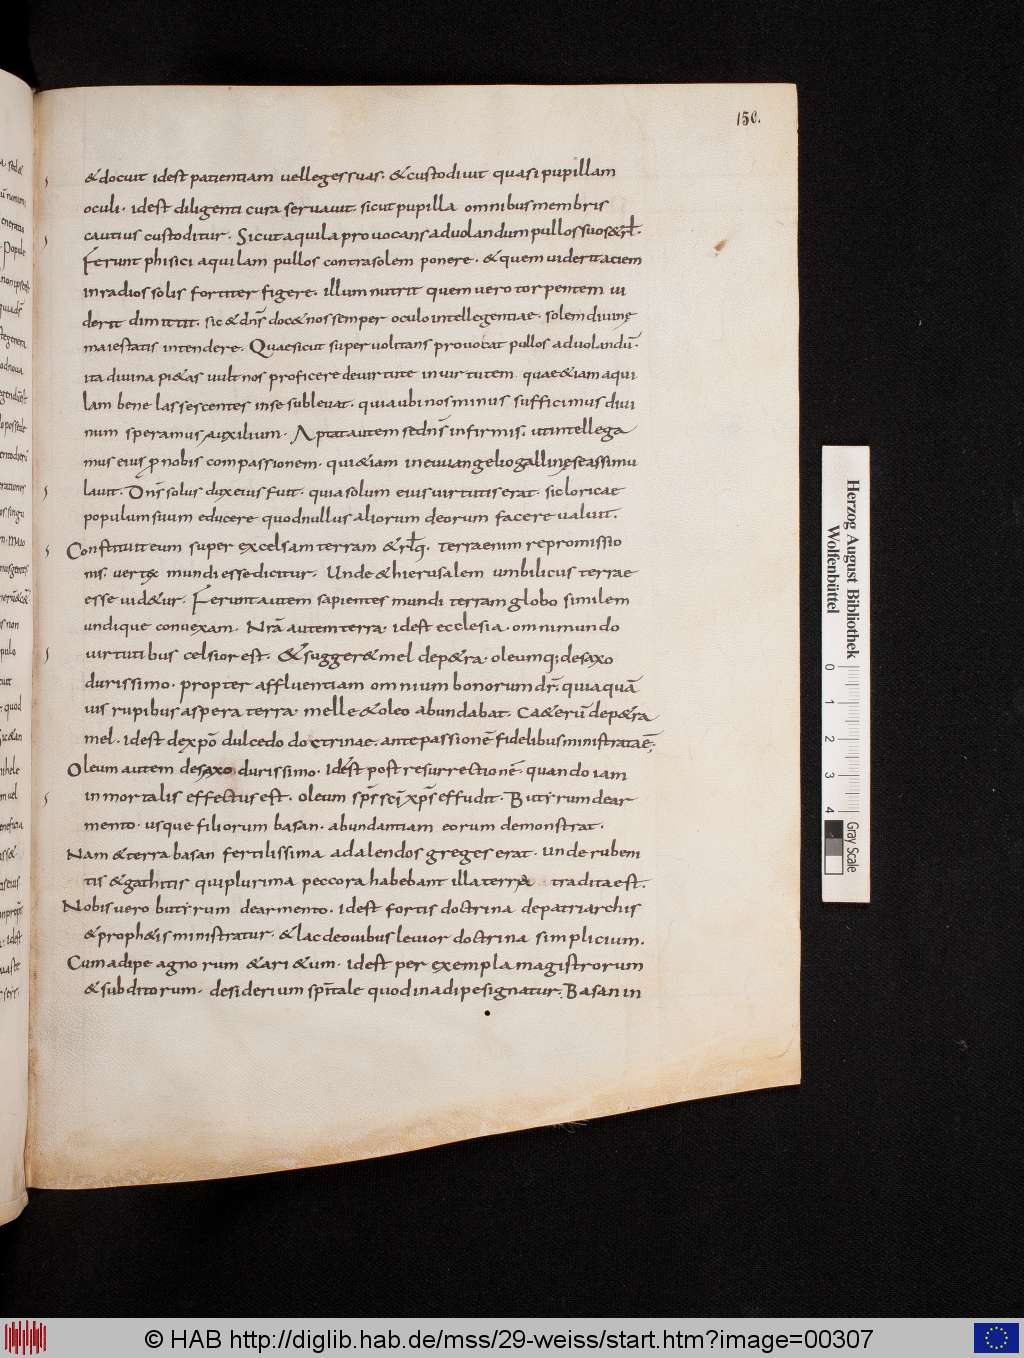 150.
& docuit idest patientiam uelleges suas · & custodiuit quasi pupillam
oculi · idest diligenti cura seruauit · sicut pupilla omnibus membris
cautius custoditur · Sicut aquila prouocans aduolandum pullos suos & rł ·
Ferunt phisici aquilam pullos contra solem ponere · & quem uiderit aciem
in radios solis fortiter figere · illum nutrit quem uero torpentem ui
derit dimittit · sic & dn̄s doc& nos semper oculo intellegentiae · solem diuinę
maiestatis intendere · Quae sicut super uolitans prouocat pullos aduolandū ·
ita diuina pi&as uult nos proficere de uirtute in uirtutem quae & iam aqui
lam bene lassescentes in se subleuat · quia ubi nos minus sufficimus diui
num speramus auxilium · Aptat autem se dn̄s infirmis · ut intellega
mus eius ꝓ nobis compassionem · qui & iam in euuangelio gallinę se assimu
lauit · Dn̄s solus dux eius fuit · quia solum eius uirtutis erat · sic loricae
populum suum educere quod nullus aliorum deorum facere ualuit ·
Constituit eum super excelsam terram & rłq · terra enim repromissio
nis · uertex mundi esse dicitur · Unde & hierusalem umbilicus terrae
esse uid&ur · Ferunt autem sapientes mundi terram globo similem
undique conuexam · Nr̄a autem terra · idest ecclesia · omni mundo
uirtutibus celsior est · & sugger& mel de p&ra · oleumq; de saxo
durissimo · propter affluentiam omnium bonorum dr̄ · quia quā
uis rupibus aspera terra · melle & oleo abundabat · Ca&erū de p&ra
mel · idest de xp̄o dulcedo doctrinae · ante passionē fidelibus ministrata ē ;
Oleum autem de saxo durissimo · idest post resurrectionē · quando iam
in mortalis effectus est · oleum sp̄s sc̄i xp̄s effudit · Butyrum de ar
mento · usque filiorum basan · abundantiam eorum demonstrat ·
Nam & terra basan fertilissima ad alendos greges erat · unde rubeni
tis & gathitis qui plurima peccora habebant illa terra tradita est ·
Nobis uero butyrum de armento · idest fortis doctrina de patriarchis
& proph&is ministratur · & lac de ouibus leuior doctrina simplicium ·
Cum adipe agnorum & ari&um · idest per exempla magistrorum
& subditorum · desiderium sp̄itale quod in adipe signatur · Basan in
Herzog August Bibliothek
Wolfenbüttel
0 1 2 3 4
Gray Scale
© HAB http://diglib.hab.de/mss/29-weiss/start.htm?image=00307